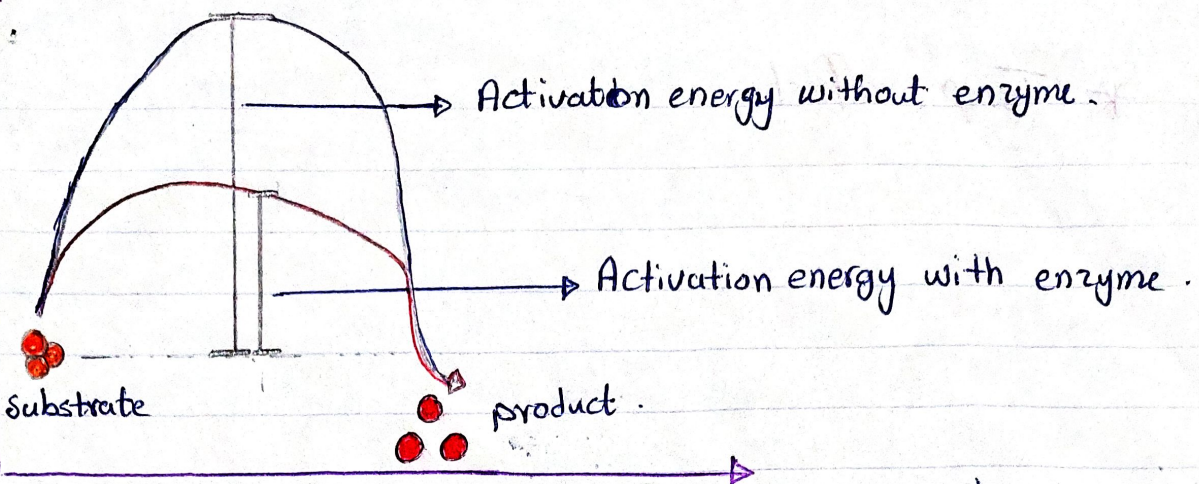 Activation energy without enzyme.
Activation energy with enzyme.
substrate
product.